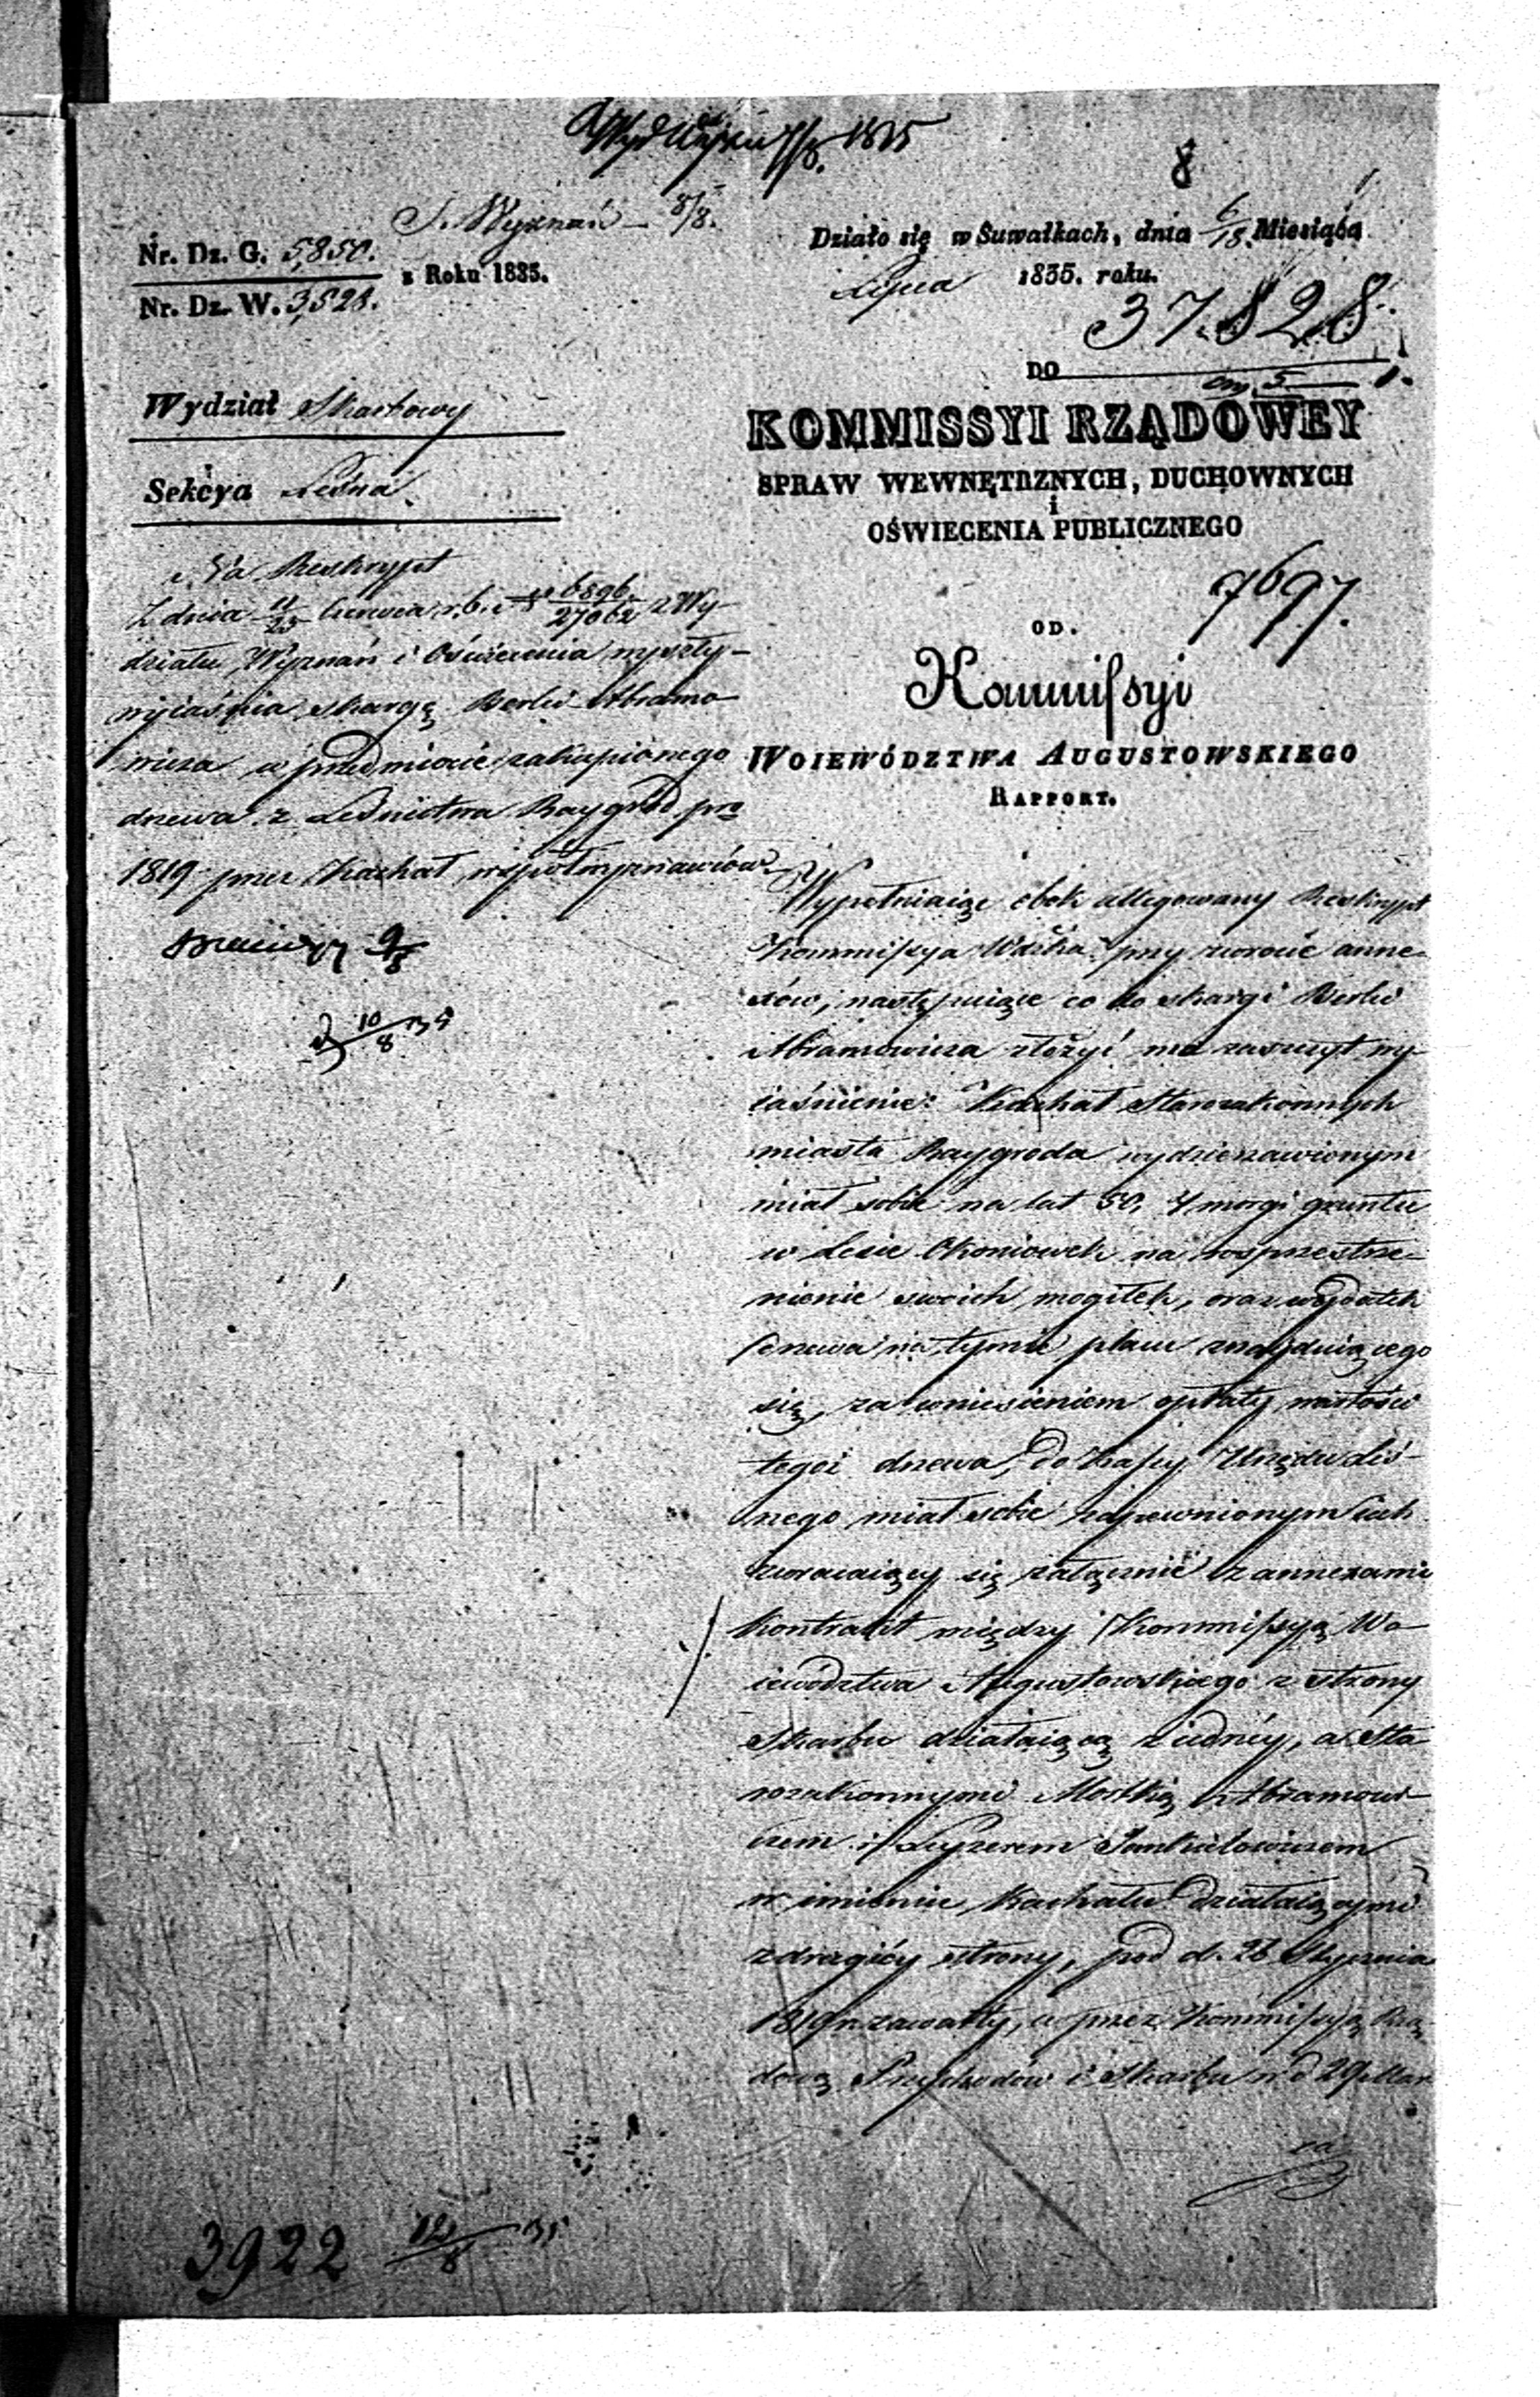 1835
8
S. Wyznań – 8/8.
Nr. Dz. G. 5,850.
Nr. Dz. W. 3,528.
z Roku 1835.
Działo się w Suwałkach, dnia 6/18. Miesiąca
Lipca 1835. roku.
37.828
DO
Wydział Skarbowy
Sekcya Leśna.
KOMMISSYI RZĄDOWEY
SPRAW WEWNĘTRZNYCH, DUCHOWNYCH
i
OŚWIECENIA PUBLICZNEGO
7697.
OD.
Kommissyi
WOIEWÓDZTWA AUGUSTOWSKIEGO
RAPPORT.
Na Reskrypt
Z dnia 11/23 Czerwca r. b. N 6896/27062 z Wy-
działu Wyznań i Oświecenia
wyiaśnia skargę Berki Abramo-
wicza w przedmiocie zakupionego
drzewa z Leśnictwa Raygród pro
1819 przez Kachał współwyznawców
9/8
10/8 35
Wypełniaiąc obok allegowany Reskrypt
Kommissya Wdzka przy zwrocie anne-
xów, następuiące co do skargi Berki
Abramowicza złożyć ma zaszczyt wy-
iaśnienie: Kachał Starozakonnych
miasta Raygroda wydzierzawionym
miał sobie na lat 50, 4 morgi gruntu
w Lesie Okoniowek na rosprzestrze-
nienie swoich mogiłek, oraz wydatek
drzewa na tymże placu znayduiącego
się, za wniesieniem opłaty wartości
tegoż drzewa, do Kassy Urzędu Leś-
nego miał sobie zapewnionym iak
zwracaiący się załącznie z annexami
Kontrakt między Kommissyą Wo-
iewództwa Augustowskiego z strony
Skarbu działaiącą z iedney, a Sta-
rozakonnymi Mostką Abramowi-
czem i Leyzerem Jankielowiczem
w imieniu Kachału działaiącymi
z drugiéy strony, pod d. 26 Stycznia
1819 r. zawarty, a przez Kommissyą Rzą-
dową Przychodów i Skarbu w d 29 Mar
ca
3922 12/8 35